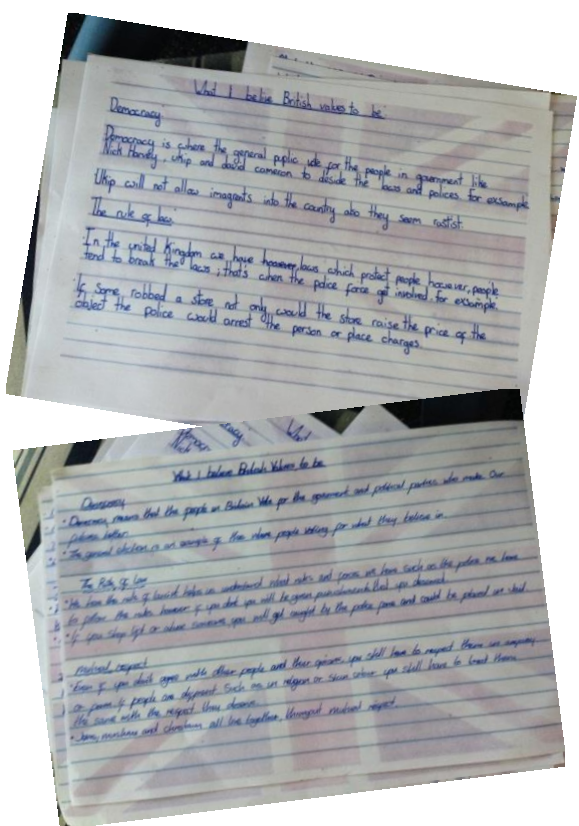 What I belive British values to be
Democracy
Democracy is where the general puplic vote for the people in government like
Nick Harvey, Ukip and david cameron to deside the laws and polices for exsample
Ukip will not allow imagrants into the country also they seem rastist.
The rule of laws
In the united Kingdom we have laws which protect people however, people
tend to break the laws; that's when the police force get involved. for exsample
If some robbed a store not only would the store raise the price of the
object the police would arrest the person or place charges.
What I believe British Values to be
Democracy
Democracy means that the people in Britain Vote for the goverment and political parties who make Our
better.
The general election is an example of this where people voting for what they believe in.
The Rule of law
We have the rule of law it helps us understand what rules and we have such as the police we have
to follow the rules however if you dont you will be given punishments that you deserved
If you shop lift or abuse someone you will get caught by the police force and could be placed in
Mutual respect
Even if you don't agree with other people and their opinions you still have to respect them in
or form. If people are different such as in religion or skin colour you still have to treat them
the same with the respect they deserve.
Jews, muslims and christians all live together, throught mutual respect.